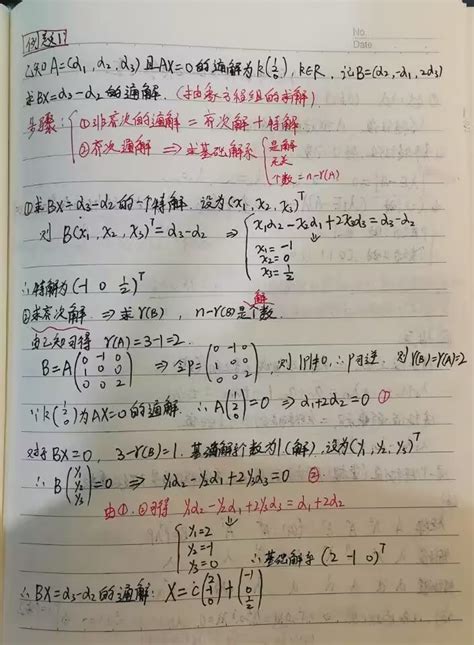 No.
Date
例题17
已知A=(α₁,α₂,α₃)且AX=0的通解为k(1 2 0), k∈R, 记B=(α₂,-α₁,2α₃)
求BX=α₃-α₂的通解.(非齐次方程组的求解)
步骤:
①非齐次的通解=齐次解+特解
②齐次通解 ⇒ 求基础解系
是解
无关
个数=n-r(A)
①求BX=α₃-α₂的一个特解. 设为(x₁, x₂, x₃)ᵀ
则 B(x₁, x₂, x₃)ᵀ=α₃-α₂ ⇒ x₁α₂-x₂α₁+2x₃α₃=α₃-α₂
⇓
x₁=-1
x₂=0
x₃=1/2
∴特解为(-1 0 1/2)ᵀ
②求齐次解 ⇒ 求r(B), n-r(B)是解个数.
由已知可得 r(A)=3-1=2.
B=A(0 -1 0
1 0 0
0 0 2) ⇒ 令P=(0 -1 0
1 0 0
0 0 2), 则|P|≠0, ∴P可逆 则r(B)=r(A)=2
∵k(1 2 0)为AX=0的通解. ∴A(1 2 0)=0 ⇒ α₁+2α₂=0 ①
对于BX=0, 3-r(B)=1. 基础解个数为1(解), 设为(y₁, y₂, y₃)ᵀ
∴B(y₁ y₂ y₃)=0 ⇒ y₁α₂-y₂α₁+2y₃α₃=0 ②.
由①.②可得 y₁α₂-y₂α₁+2y₃α₃=α₁+2α₂
⇓
y₁=2
y₂=-1
y₃=0
∴基础解系(2 -1 0)ᵀ
∴BX=α₃-α₂的通解: X=c(2 -1 0)+(-1 0 1/2)